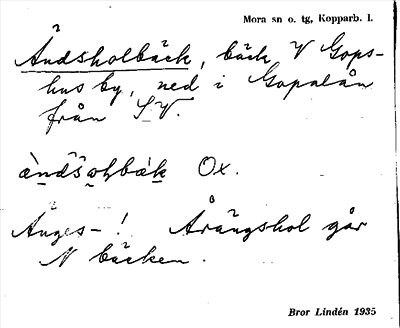 Mora sn o. tg, Kopparb. l.
Ändsholbäck, bäck V Gops-
hus by, ned i Gopalån
från S.V.
Ox.
Änges- ! Årängshol går
N bäcken.
Bror Lindén 1935